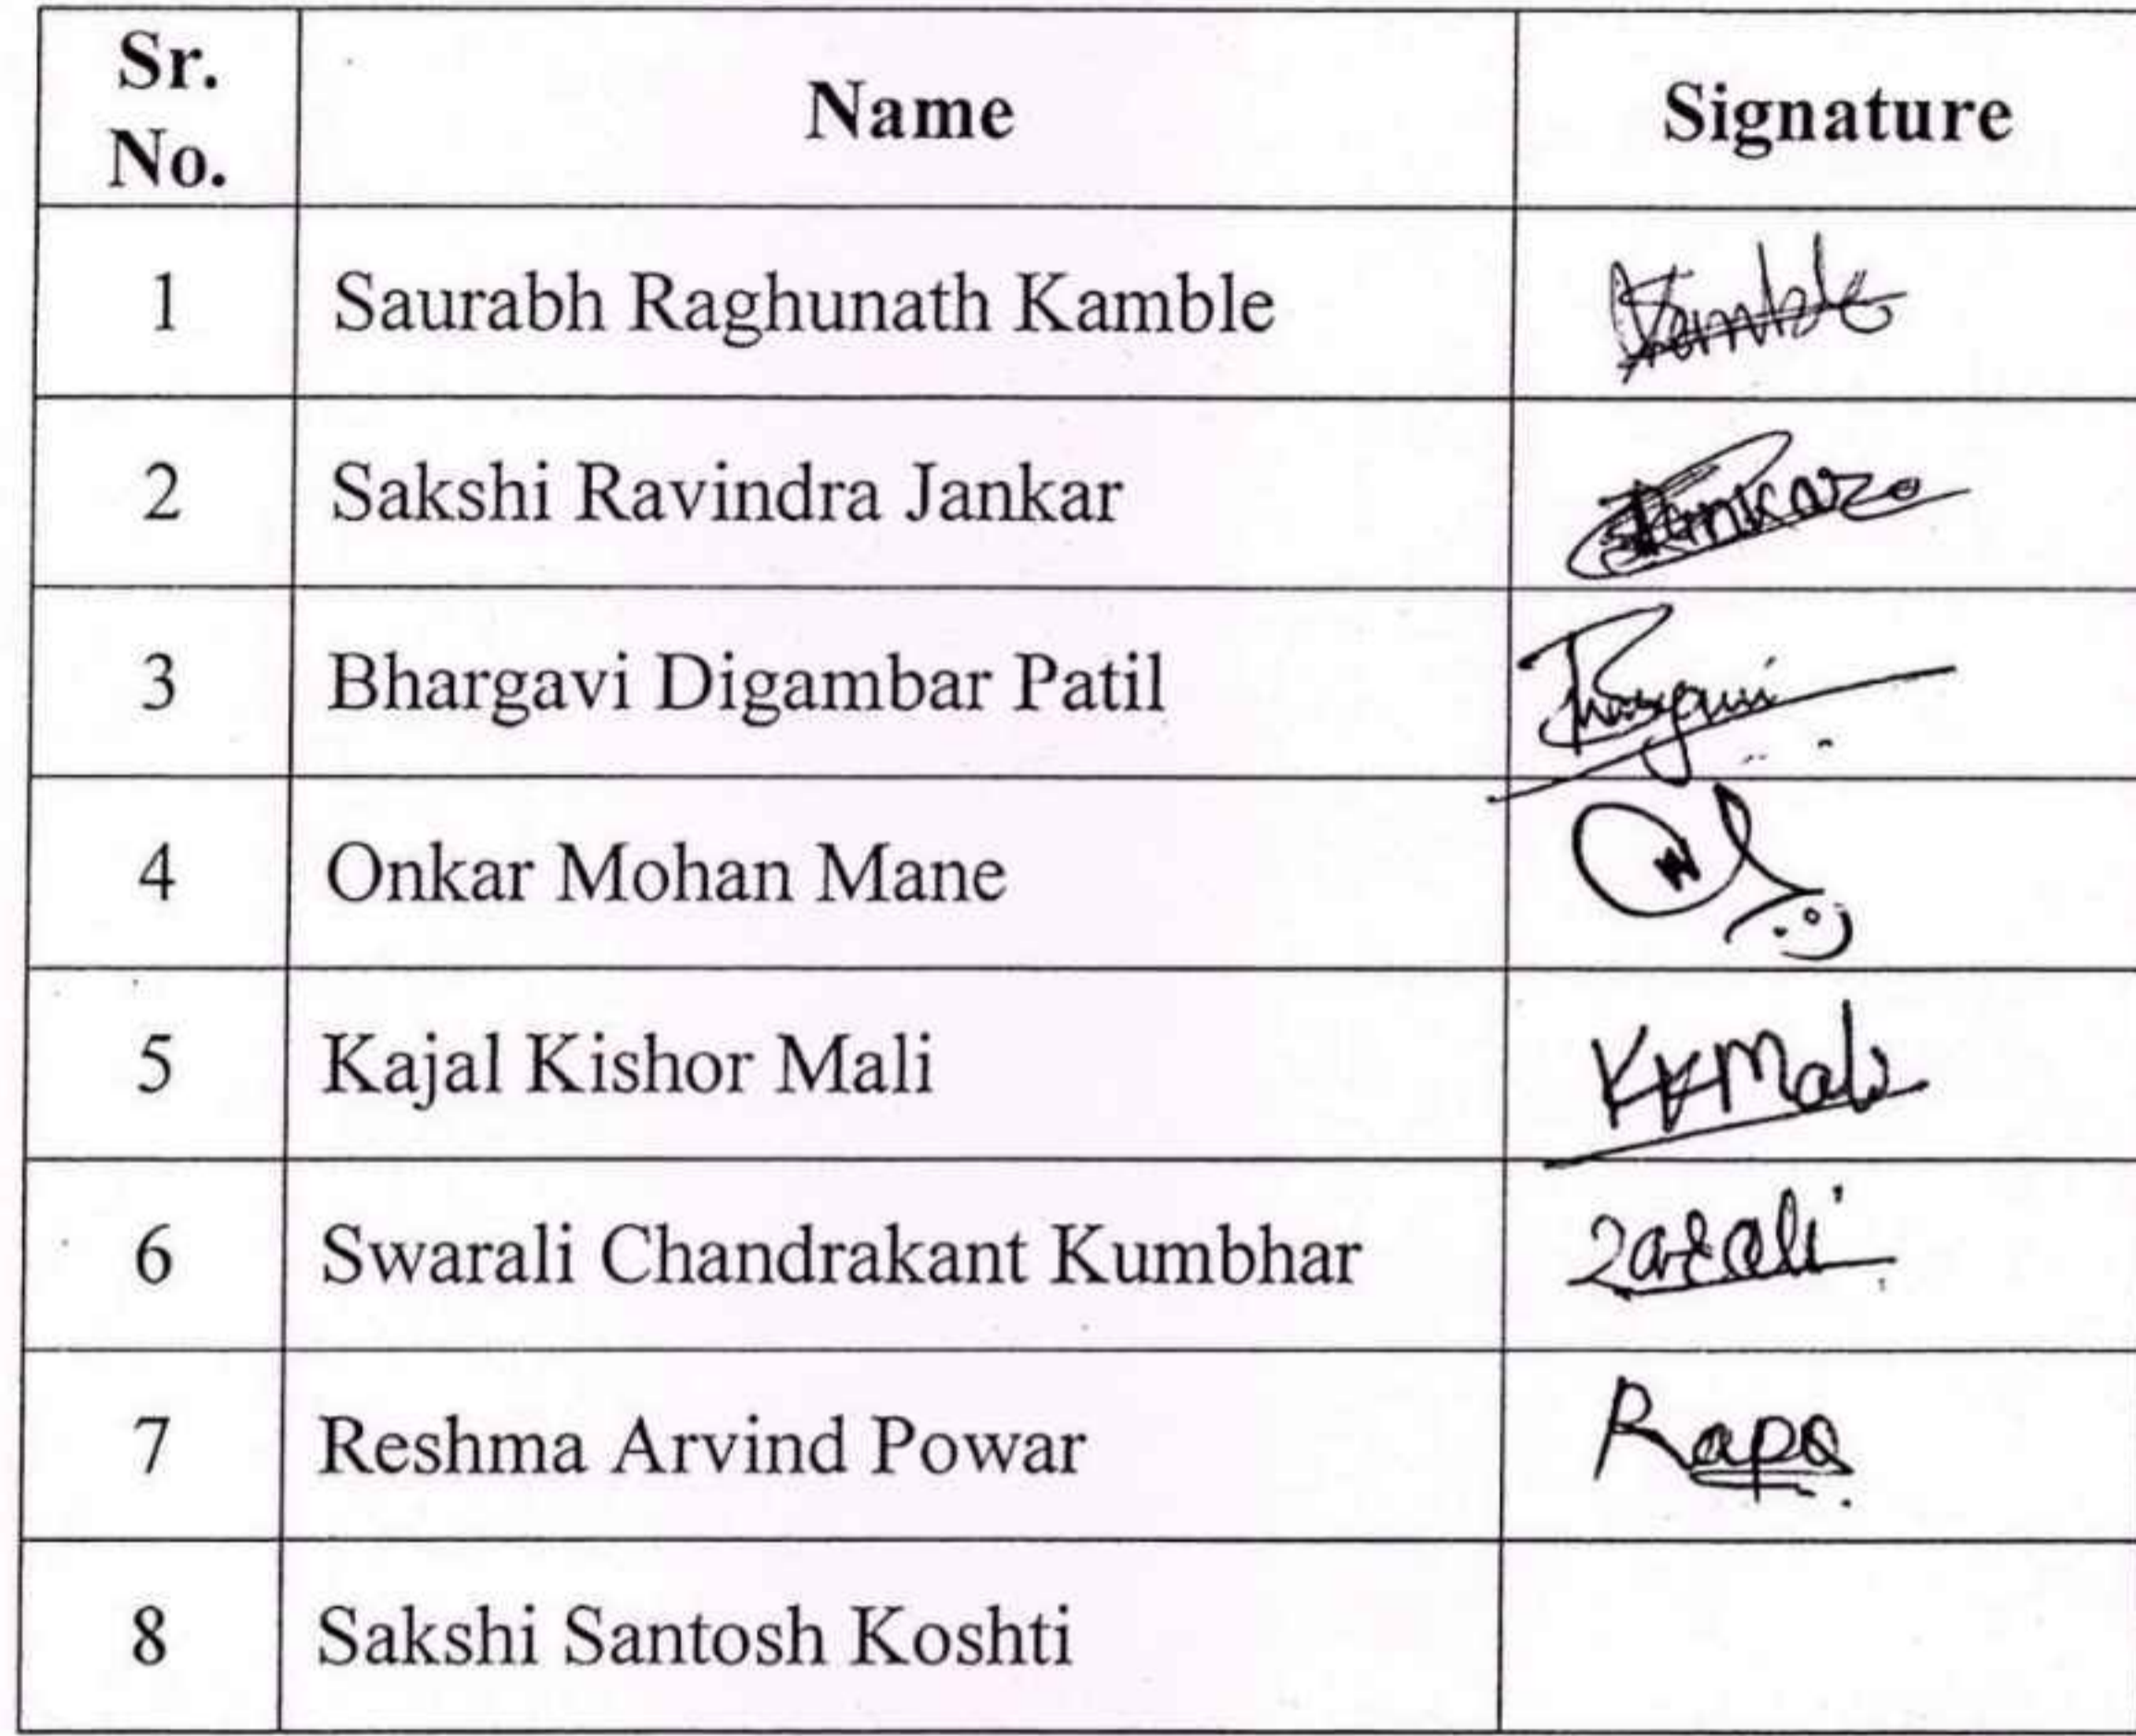 Sr. No. Name Signature
1 Saurabh Raghunath Kamble Kamble
2 Sakshi Ravindra Jankar
3 Bhargavi Digambar Patil
4 Onkar Mohan Mane
5 Kajal Kishor Mali KKMali
6 Swarali Chandrakant Kumbhar
7 Reshma Arvind Powar Rapo
8 Sakshi Santosh Koshti